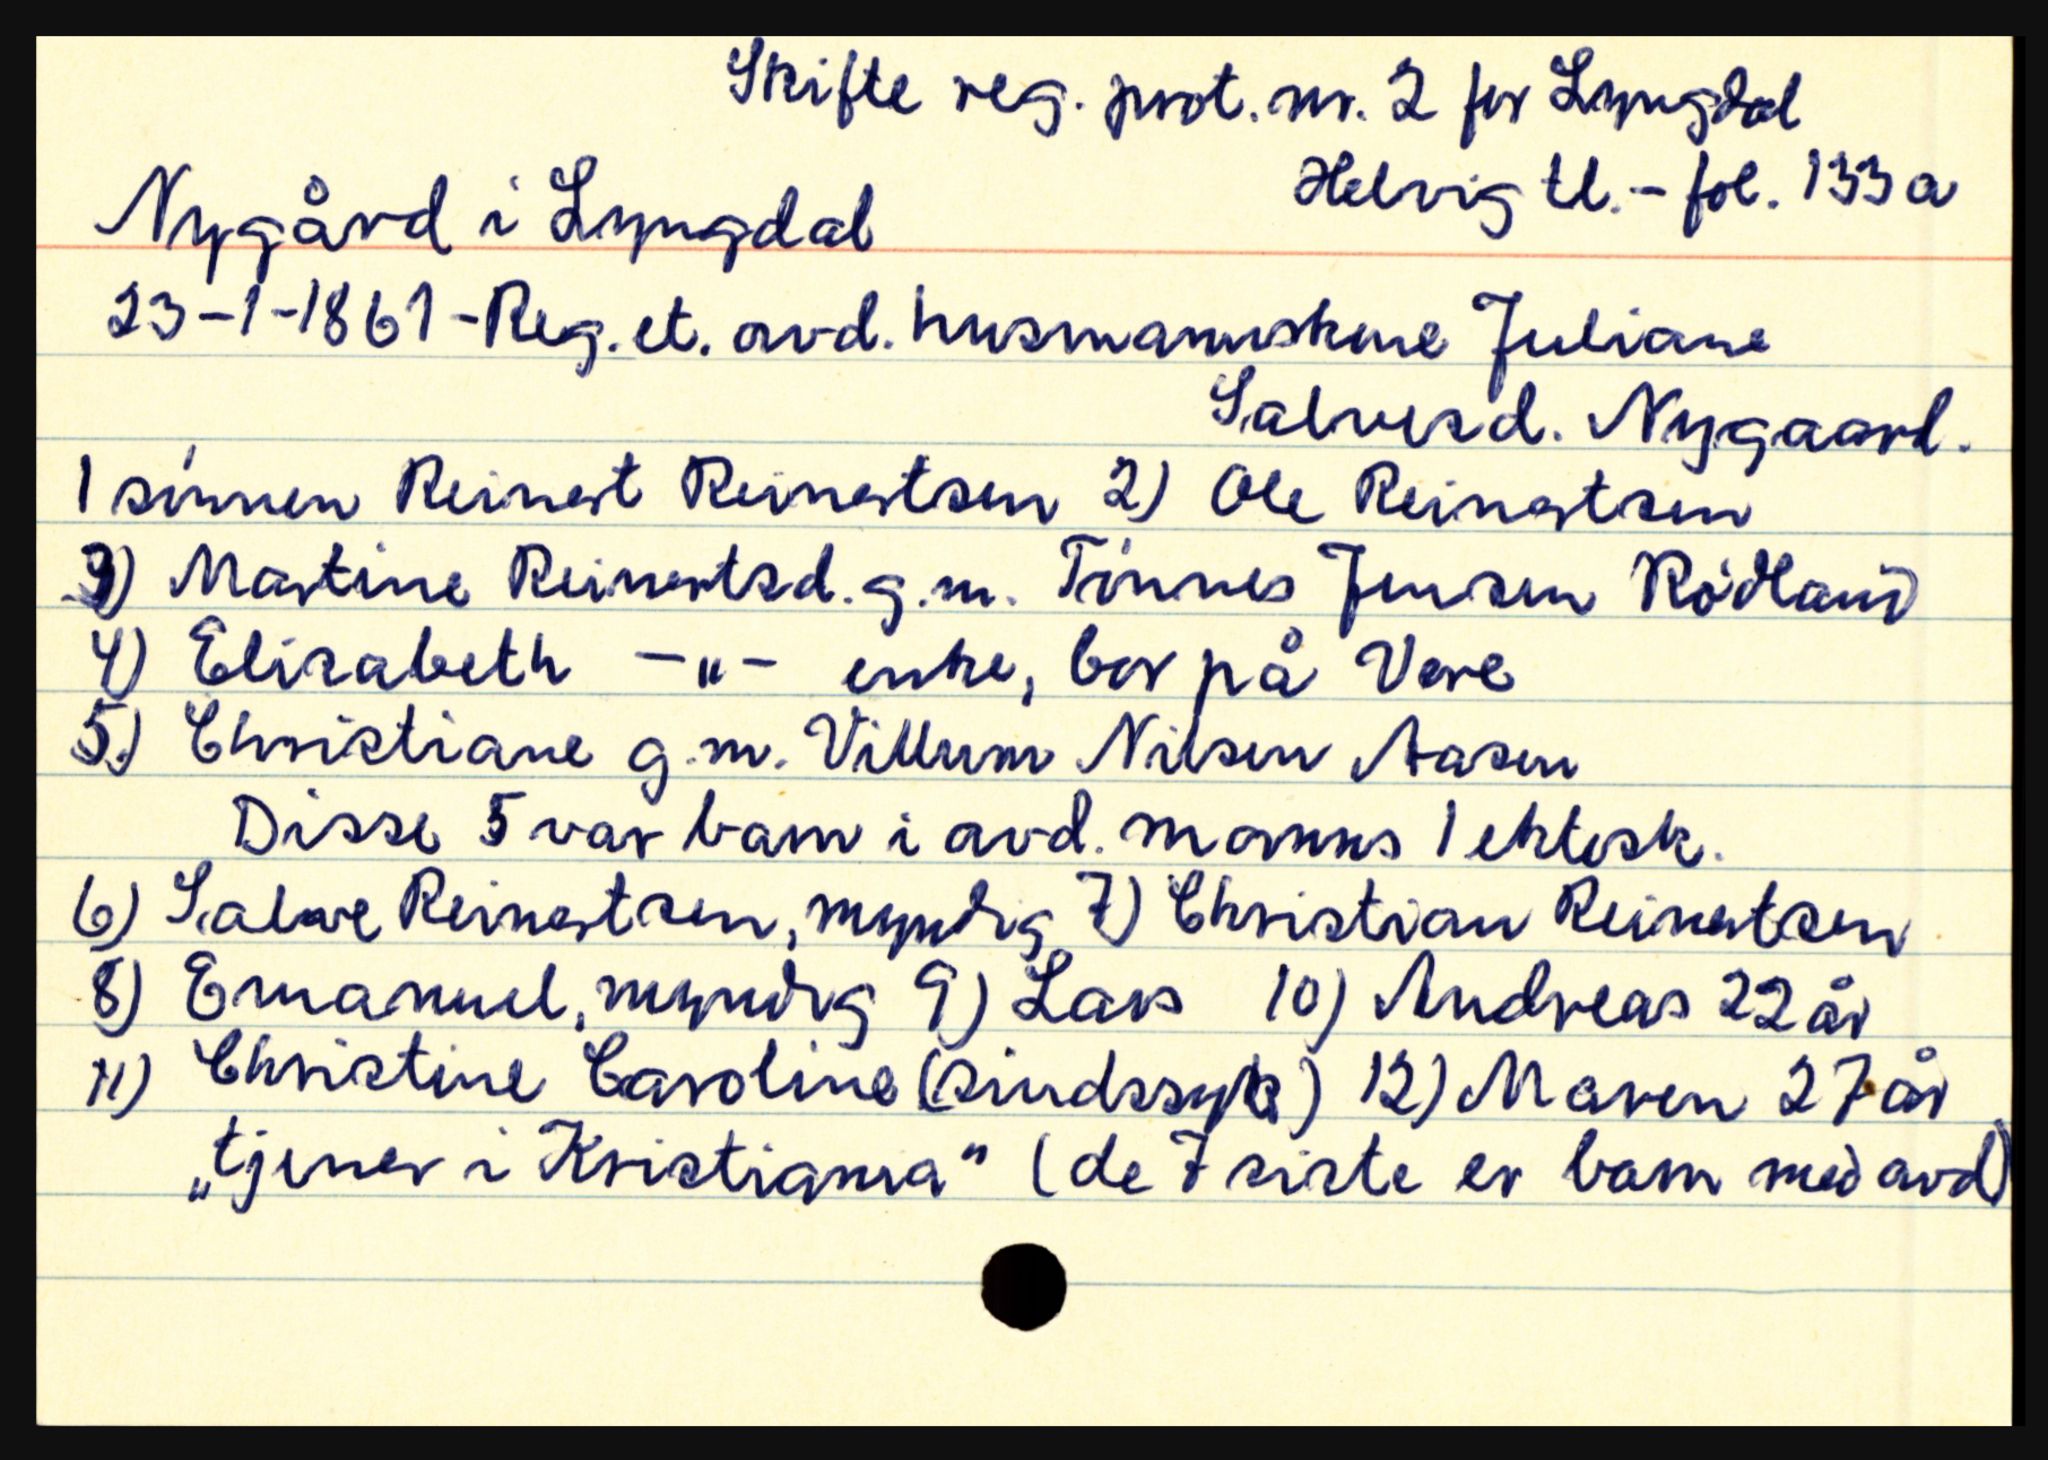 Skifte reg. prot. nr. 2 for Lyngdal
Helvig tl. - fol. 133a
Nygård i Lyngdal
23-1-1861 - Reg. et. avd. husmannskone Juliane
Salvesd. Nygaard.
1 sønnen Reinert Reinertsen 2) Ole Reinertsen
3) Martine Reinertsd. g.m. Tønnes Jensen Rødland
4) Elisabeth -"- enke, bor på Vere
5) Christiane g.m. Villum Nilsen Aasen
Disse 5 var barn i avd. manns 1 ektesk.
6) Salve Reinertsen, myndig 7) Christian Reinertsen
8) Emanuel, myndig 9) Lars 10) Andreas 22 år
11) Christine Caroline (sindssyk) 12) Maren 27 år
„tjener i Kristiania" (de 7 siste er barn med avd)